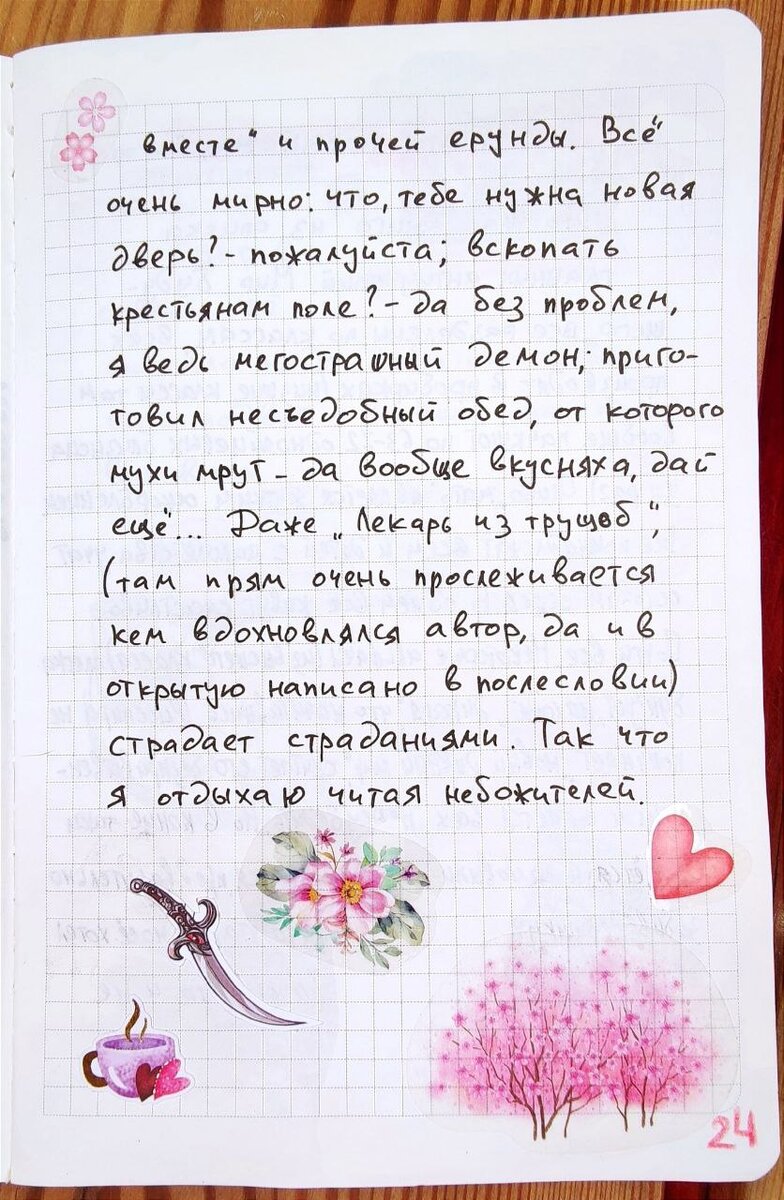 вместе" и прочей ерунды. Всё
очень мирно: что, тебе нужна новая
дверь? - пожалуйста; вскопать
крестьянам поле? - да без проблем,
я ведь мегострашный демон; приго-
товил несъедобный обед, от которого
мухи мрут - да вообще вкусняха, дай
ещё... Даже „Лекарь из трущоб",
(там прям очень прослеживается
кем вдохновлялся автор, да и в
открытую написано в послесловии)
страдает страданиями. Так что
я отдыхаю читая небожителей.
24